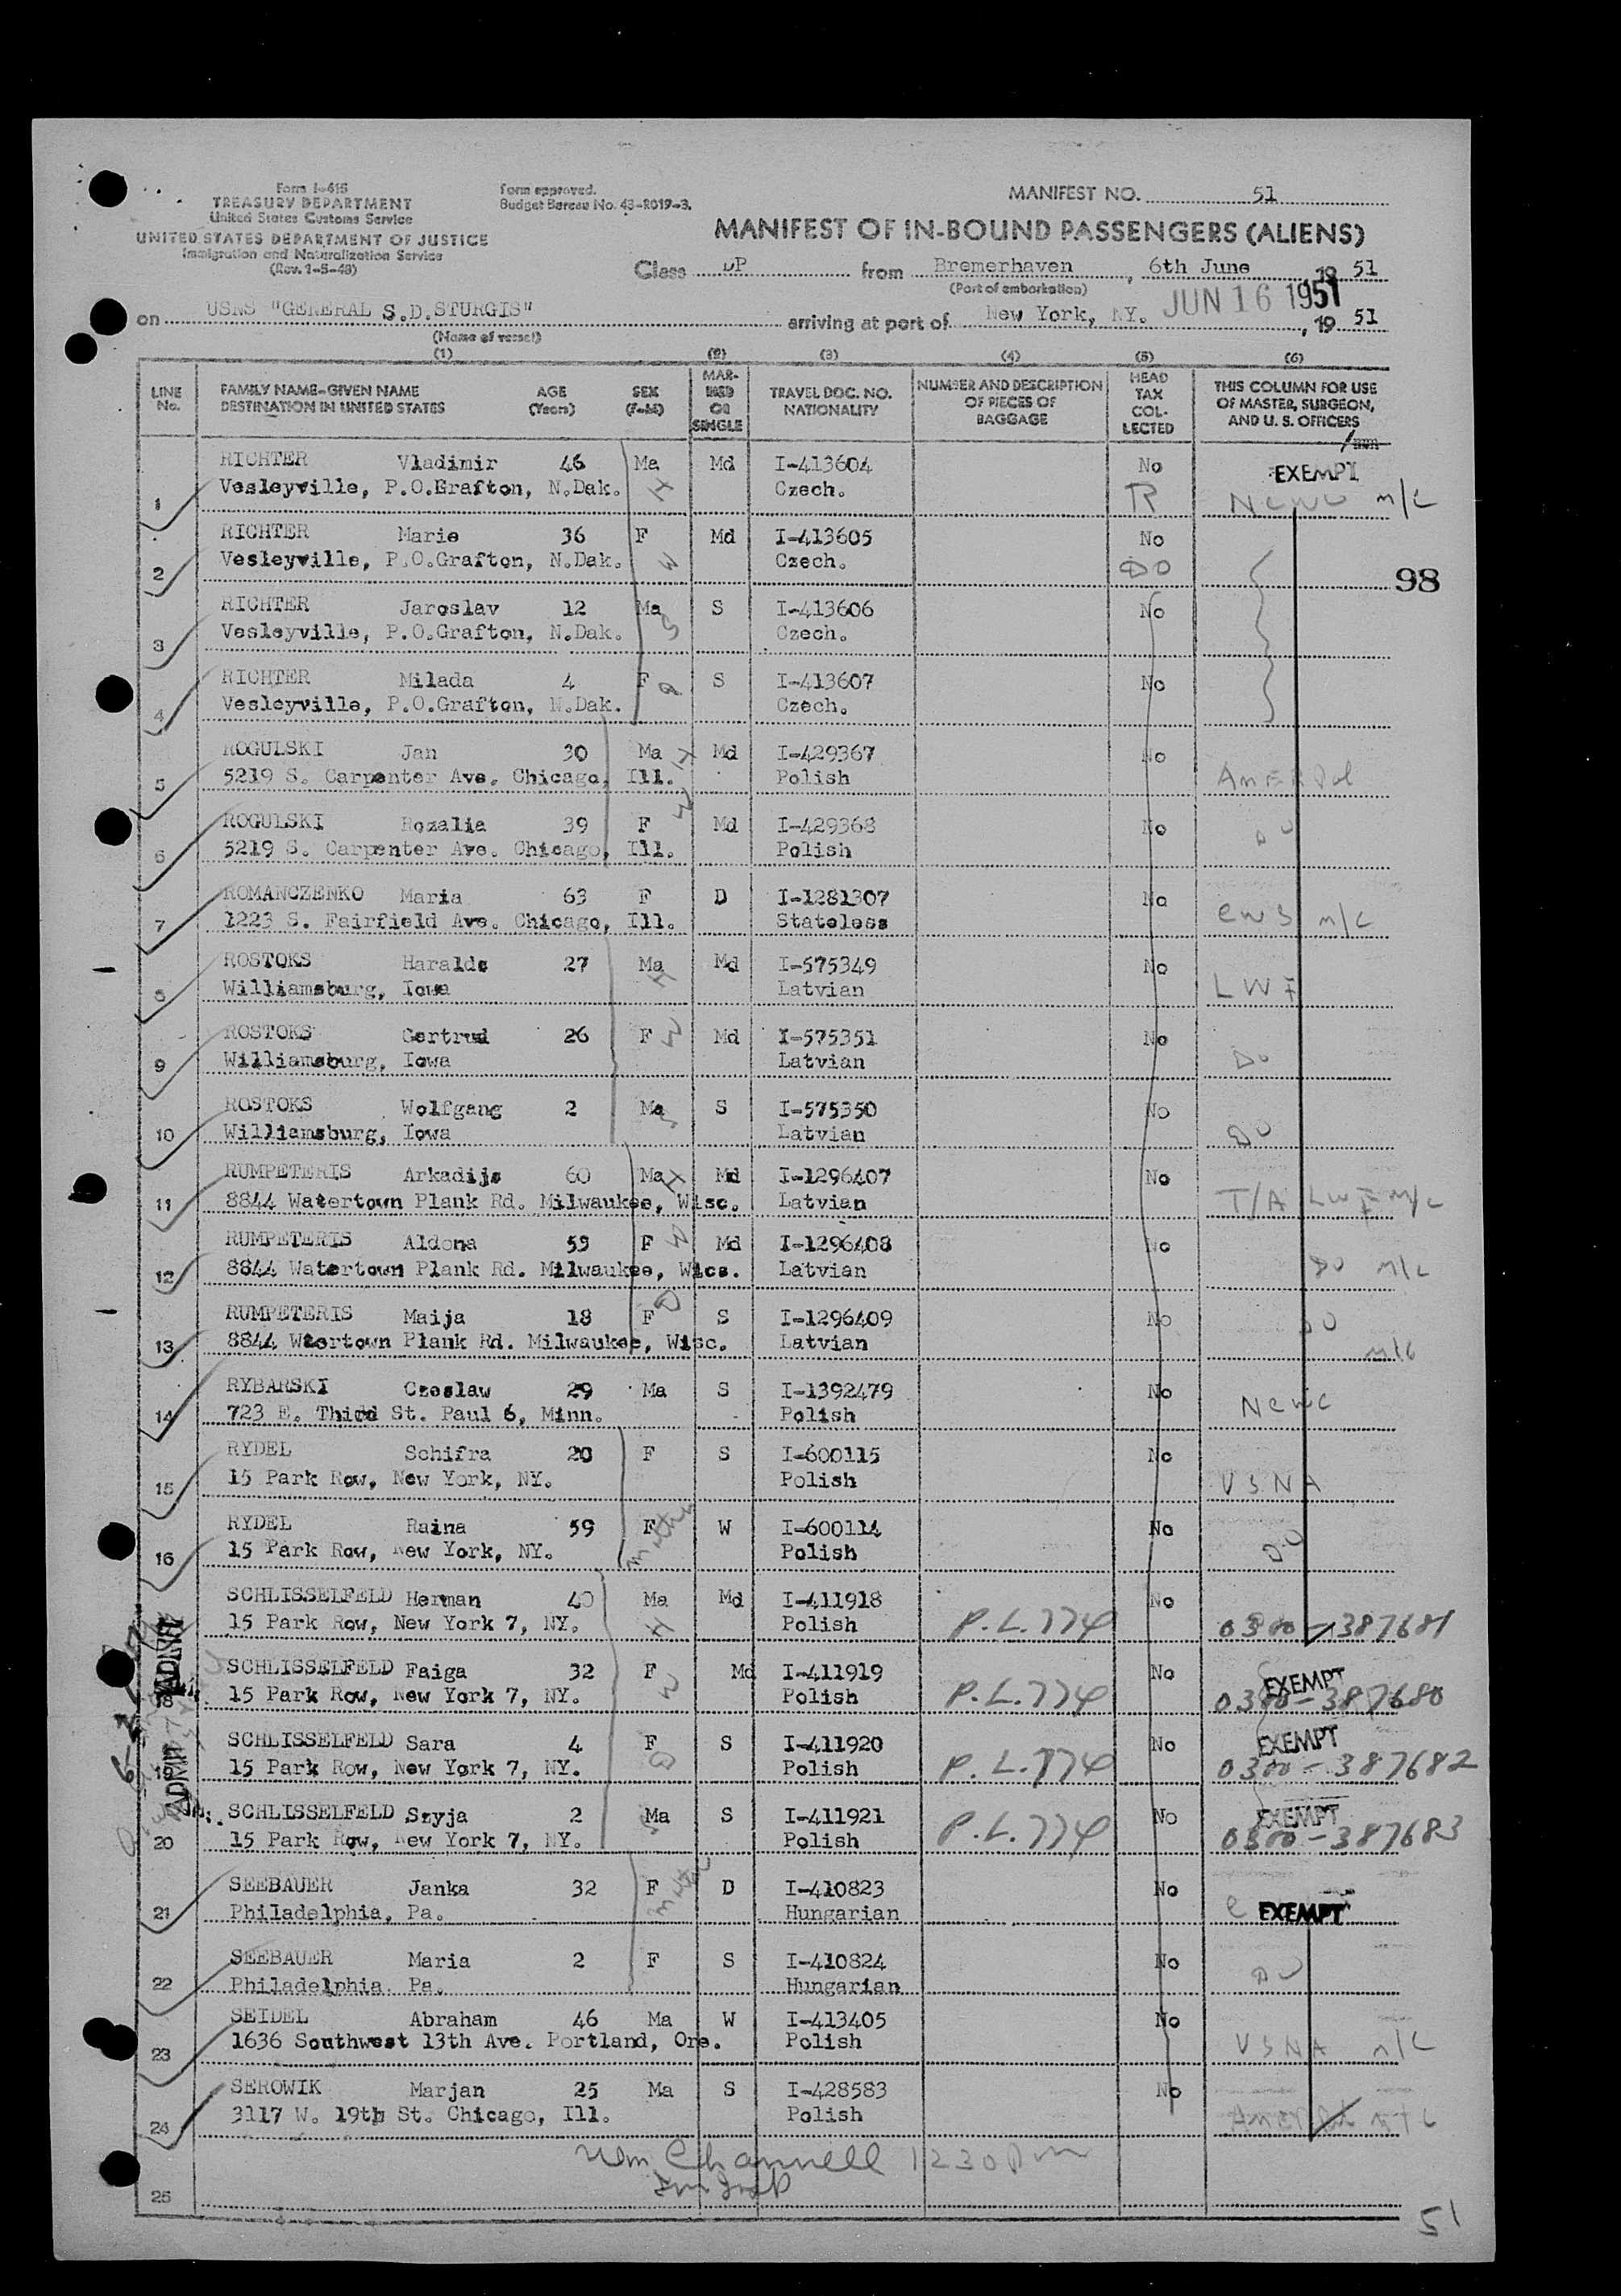 Form I-415
TREASURY DEPARTMENT
United States Customs Service
UNITED STATES DEPARTMENT OF JUSTICE
Immigration and Naturalization Service
(Rev. 1-5-48)
Form approved.
Budget Bureau No. 43-R019-3.
MANIFEST NO. 51
MANIFEST OF IN-BOUND PASSENGERS (ALIENS)
Class DP from Bremerhaven, 6th June 1951
(Port of embarkation)
on USNS "GENERAL S.D.STURGIS" arriving at port of New York, NY. JUN 16 1951, 1951
(Name of vessel)
(1) (2) (3) (4) (5) (6)
LINE No. FAMILY NAME-GIVEN NAME DESTINATION IN UNITED STATES AGE (Years) SEX (F-M) MARRIED OR SINGLE TRAVEL DOC. NO. NATIONALITY NUMBER AND DESCRIPTION OF PIECES OF BAGGAGE HEAD TAX COLLECTED THIS COLUMN FOR USE OF MASTER, SURGEON, AND U. S. OFFICERS
RICHTER Vladimir 46 Ma Md I-413604 No EXEMPT
1 Vesleyville, P.O.Grafton, N.Dak. H Czech. R NCWC m/c
RICHTER Marie 36 F Md I-413605 No
2 Vesleyville, P.O.Grafton, N.Dak. W Czech. DO 98
RICHTER Jaroslav 12 Ma S I-413606 No
3 Vesleyville, P.O.Grafton, N.Dak. S Czech.
RICHTER Milada 4 F S I-413607 No
4 Vesleyville, P.O.Grafton, N.Dak. D Czech.
ROGULSKI Jan 30 Ma H Md I-429367 No
5 5219 S. Carpenter Ave. Chicago, Ill. Polish AmERPol
ROGULSKI Rozalia 39 F W Md I-429368 No
6 5219 S. Carpenter Ave. Chicago, Ill. Polish DO
ROMANCZENKO Maria 63 F D I-1281307 No
7 1223 S. Fairfield Ave. Chicago, Ill. Stateless CWS m/c
ROSTOKS Haralds 27 Ma H Md I-575349 No
8 Williamsburg, Iowa Latvian LWF
ROSTOKS Gertrud 26 F W Md I-575351 No
9 Williamsburg, Iowa Latvian Do
ROSTOKS Wolfgang 2 Ma S S I-575350 No
10 Williamsburg, Iowa Latvian DO
RUMPETERIS Arkadijs 60 Ma H Md I-1296407 No
11 8844 Watertown Plank Rd. Milwaukee, Wisc. Latvian T/A LWF m/c
RUMPETERIS Aldona 59 F W Md I-1296408 No
12 8844 Watertown Plank Rd. Milwaukee, Wics. Latvian DO m/c
RUMPETERIS Maija 18 F D S I-1296409 No
13 8844 Wtertown Plank Rd. Milwaukee, Wisc. Latvian DO m/c
RYBARSKI Czeslaw 29 Ma S I-1392479 No
14 723 E. Third St. Paul 6, Minn. Polish NCWC
RYDEL Schifra 20 F S I-600115 No
15 15 Park Row, New York, NY. Polish USNA
RYDEL Raina 59 F mother W I-600114 No
16 15 Park Row, New York, NY. Polish DO
SCHLISSELFELD Herman 40 Ma Md I-411918 No
15 Park Row, New York 7, NY. H Polish P.L.774 0300-387681
ADMIT
SCHLISSELFELD Faiga 32 F Md I-411919 No EXEMPT
18 15 Park Row, New York 7, NY. W Polish P.L.774 0300-387680
SCHLISSELFELD Sara 4 F S I-411920 No EXEMPT
19 15 Park Row, New York 7, NY. D Polish P.L.774 0300-387682
ADMIT
SCHLISSELFELD Szyja 2 Ma S I-411921 No EXEMPT
20 15 Park Row, New York 7, NY. Polish P.L.774 0300-387683
SEEBAUER Janka 32 F mother D I-410823 No
21 Philadelphia, Pa. Hungarian EXEMPT
SEEBAUER Maria 2 F S I-410824 No
22 Philadelphia. Pa. Hungarian DO
SEIDEL Abraham 46 Ma W I-413405 No
23 1636 Southwest 13th Ave. Portland, Ore. Polish USNA m/c
SEROWIK Marjan 25 Ma S I-428583 No
24 3117 W. 19th St. Chicago, Ill. Polish AmERPol m/c
Wm Channell 1230 Pm
25
51